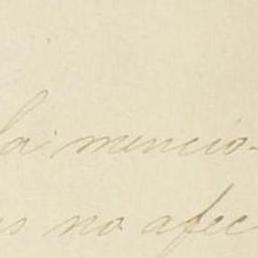 la mencio-
es no afec